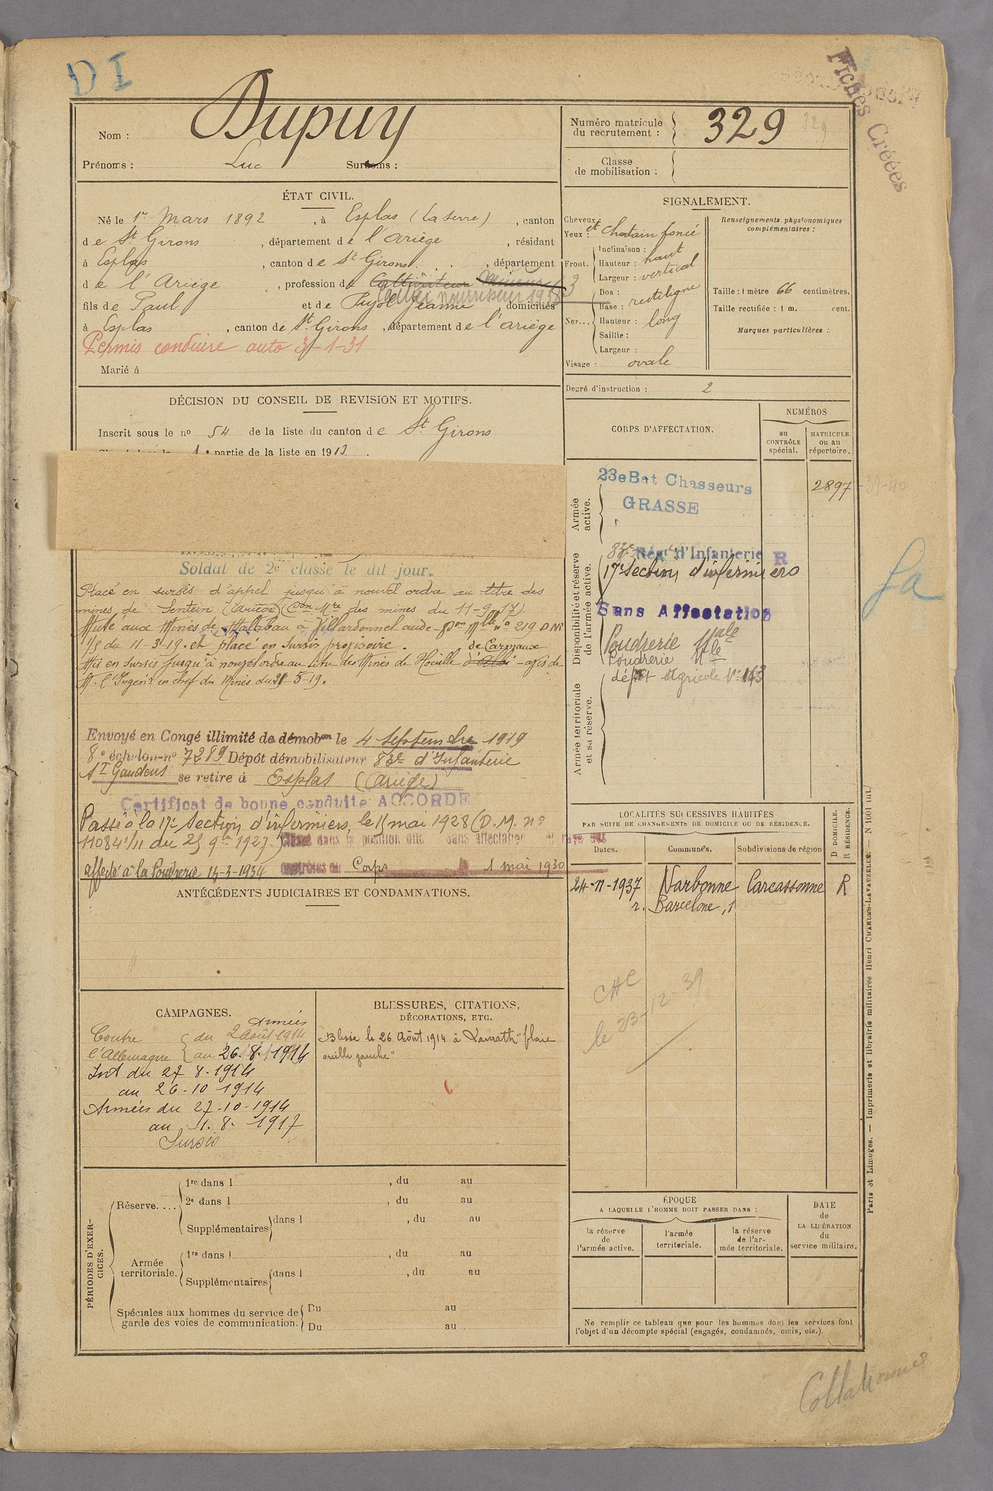 DI
Fiches Créées
Nom : Dupuy
Prénoms : Luc Surnoms :
Numéro matricule du recrutement : 329
Classe de mobilisation :
ÉTAT CIVIL.
Né le 1er Mars 1892, à Esplas (La serre), canton
de St Girons, département de l'Ariège, résidant
à Esplas, canton de St Girons, département
de l'Ariège, profession de Cultivateur mineur
laitier nourrisseur 1938
fils de Paul et de Pujol Jeanne domiciliés
à Esplas, canton de St Girons, département de l'Ariège
Permis conduire auto 3-1-31
Marié à
SIGNALEMENT.
Cheveux et
Yeux : Chatain foncé
Front.
Inclinaison :
Hauteur : haut
Largeur : vertical
Nez...
Dos :
Base : rectiligne
Hauteur : long
Saillie :
Largeur :
Visage : ovale
Renseignements physionomiques
complémentaires :
Taille : 1 mètre 66 centimètres.
Taille rectifiée : 1 m. cent.
Marques particulières :
Degré d'instruction : 2
DÉCISION DU CONSEIL DE REVISION ET MOTIFS.
Inscrit sous le no 54 de la liste du canton de St Girons
partie de la liste en 1913.
Soldat de 2e classe le dit jour.
Placé en sursis d'appel jusqu'à nouvel ordre au titre des
mines de Sentein (Ariège) (Con Mre des mines du 11-9-17)
aux Mines de Mallabau à Villardonnel aude 219 D.M.
1/5 du 11-3-19. et placé en Sursis provisoire.
de Carmaux
Mis en Sursis jusqu'à nouvel ordre au titre des Mines de Houille d'Albi - avis de
M. l'Ingénr en chef des Mines du 28-5-19.
Envoyé en Congé illimité de démobon le 4 Septembre 1919
8e échelon no 7289 Dépôt démobilisateur 83e d'Infanterie
St Gaudens se retire à Esplas (Ariège)
Certificat de bonne conduite ACCORDÉ
Passé à la 17e Section d'infirmiers, le 1 mai 1928 (D.M. no
11084 1/11 du 25 9bre 1927.)
Classé dans la position dite sans affectation et rayé des
contrôles du Corps le 1 mai 1930
affecté à la Poudrerie 14-3-1934
CORPS D'AFFECTATION.
NUMÉROS
au CONTRÔLE spécial.
MATRICULE ou au répertoire.
Armée active.
23e Bat Chasseurs
GRASSE
2897
39-40
Disponibilité et réserve de l'armée active.
83e Régt d'Infanterie R
17e Section d'infirmiers
Sans Affectation
Poudrerie
Poudrerie Nle
dépôt Agricole No 143
Armée territoriale et sa réserve.
LOCALITÉS SUCCESSIVES HABITÉES
PAR SUITE DE CHANGEMENTS DE DOMICILE OU DE RÉSIDENCE.
Dates. Communes. Subdivisions de région
D DOMICILE. R RÉSIDENCE.
24-11-1937 Narbonne Carcassonne R
r. Barcelone, 1
CAC
le 23-12-39
ANTÉCÉDENTS JUDICIAIRES ET CONDAMNATIONS.
CAMPAGNES.
Contre l'Allemagne
Armées
du 2 Août 1914
au 26.8.1914
Int du 27 8-1914
au 26-10 1914
Armées du 27-10-1914
au 1.8.1917
Sursis
BLESSURES, CITATIONS,
DÉCORATIONS, ETC.
Blessé le 26 Août 1914 à Lamath "plaie
oreille gauche"
PÉRIODES D'EXERCICES.
Réserve....
1re dans l , du au
2e dans l , du au
Supplémentaires dans l , du au
Armée territoriale.
1re dans l , du au
Supplémentaires dans l , du au
Spéciales aux hommes du service de garde des voies de communication.
Du au
Du au
ÉPOQUE
A LAQUELLE L'HOMME DOIT PASSER DANS :
la réserve de l'armée active.
l'armée territoriale.
la réserve de l'armée territoriale.
DATE de LA LIBÉRATION du service militaire.
Ne remplir ce tableau que pour les hommes dont les services font
l'objet d'un décompte spécial (engagés, condamnés, omis, etc.).
Paris et Limoges. — Imprimerie et librairie militaires Henri CHARLES-LAVAUZELLE.
Collationné